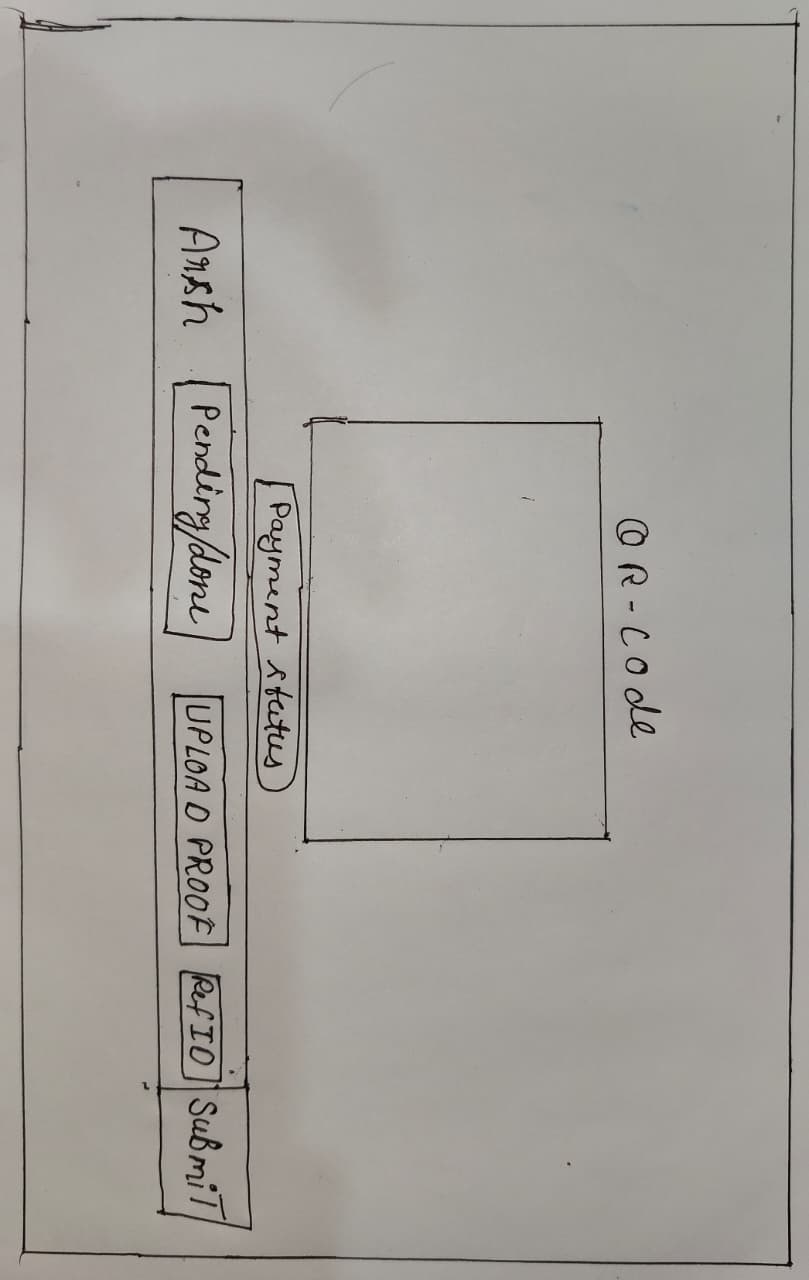 QR-Code
Payment status
Arsh Pending/done UPLOAD PROOF Ref ID Submit